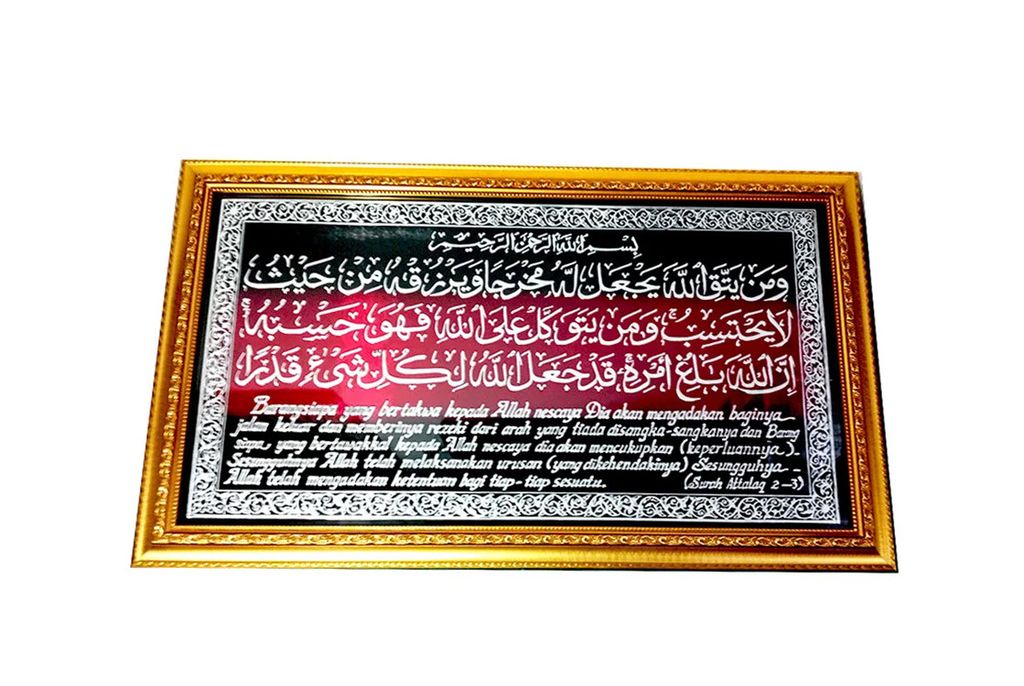 بِسْمِ اللَّهِ الرَّحْمَٰنِ الرَّحِيمِ
وَمَن يَتَّقِ اللَّهَ يَجْعَل لَّهُ مَخْرَجًا وَيَرْزُقْهُ مِنْ حَيْثُ
لَا يَحْتَسِبُ وَمَن يَتَوَكَّلْ عَلَى اللَّهِ فَهُوَ حَسْبُهُ
إِنَّ اللَّهَ بَالِغُ أَمْرِهِ قَدْ جَعَلَ اللَّهُ لِكُلِّ شَيْءٍ قَدْرًا
Barangsiapa yang bertakwa kepada Allah nescaya Dia akan mengadakan baginya
jalan keluar dan memberinya rezeki dari arah yang tiada disangka-sangkanya dan Barang
siapa, yang bertawakkal kepada Allah nescaya dia akan mencukupkan (keperluannya)-
Sesungguhnya Allah telah melaksanakan urusan (yang dikehendakinya) Sesungguhya--
Allah telah mengadakan ketentuan bagi tiap-tiap sesuatu. (Surah Attalaq 2-3)